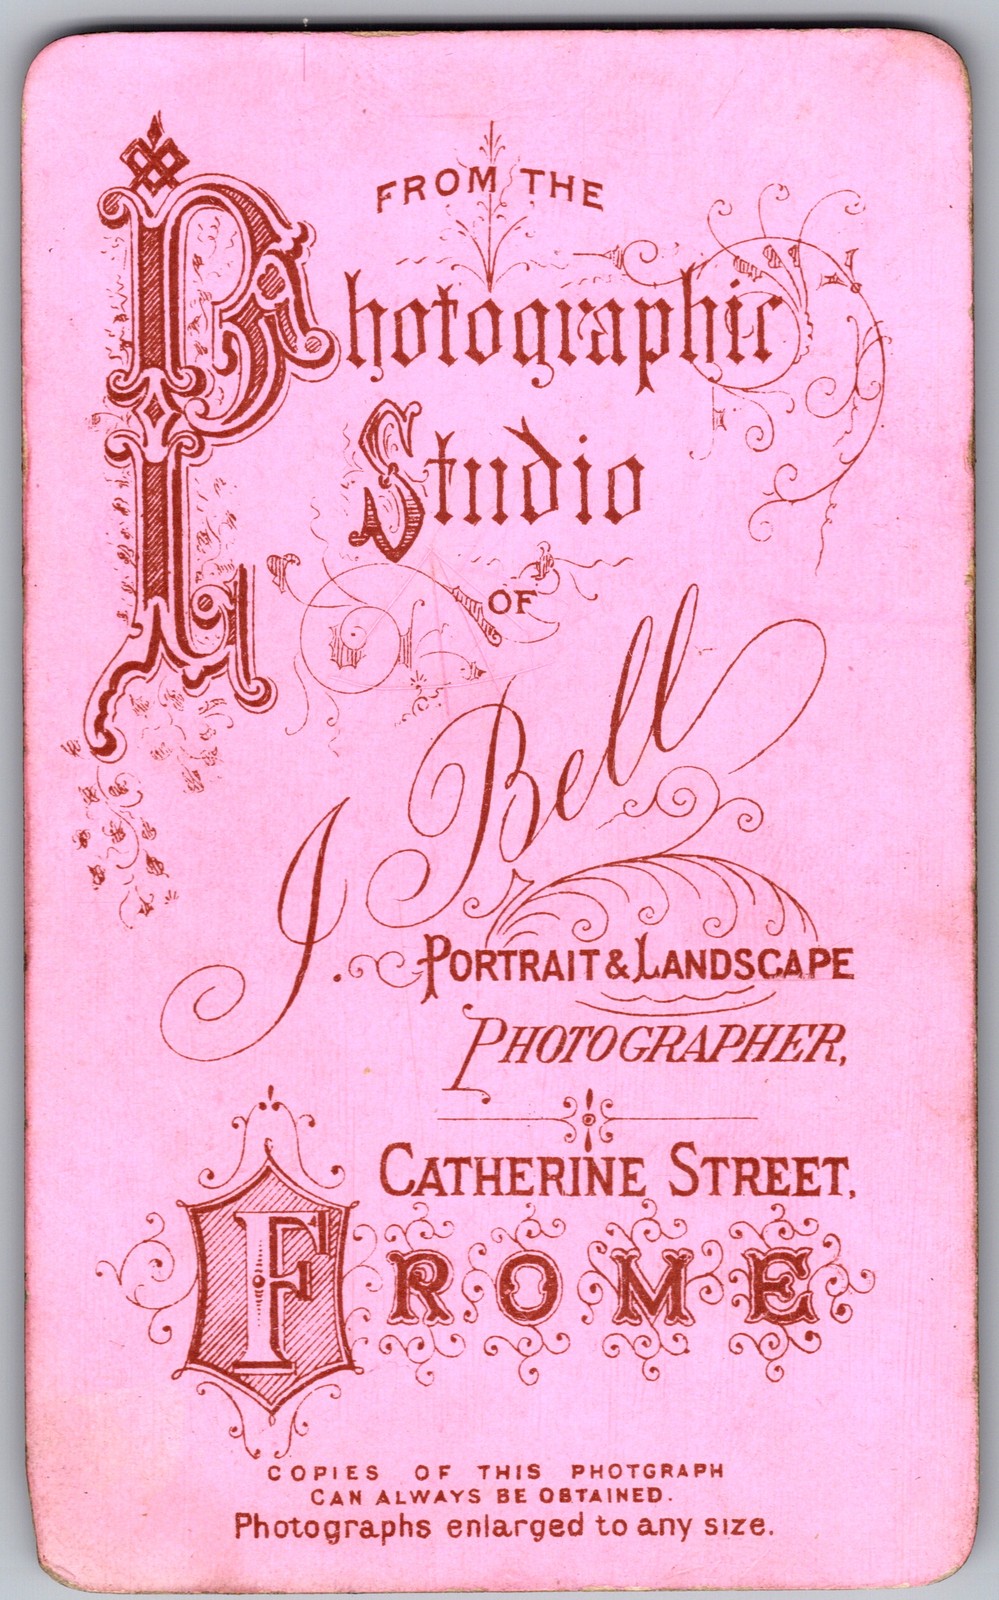 FROM THE
Photographic
Studio
OF
J. Bell
PORTRAIT & LANDSCAPE
PHOTOGRAPHER,
CATHERINE STREET,
FROME
COPIES OF THIS PHOTGRAPH
CAN ALWAYS BE OBTAINED.
Photographs enlarged to any size.